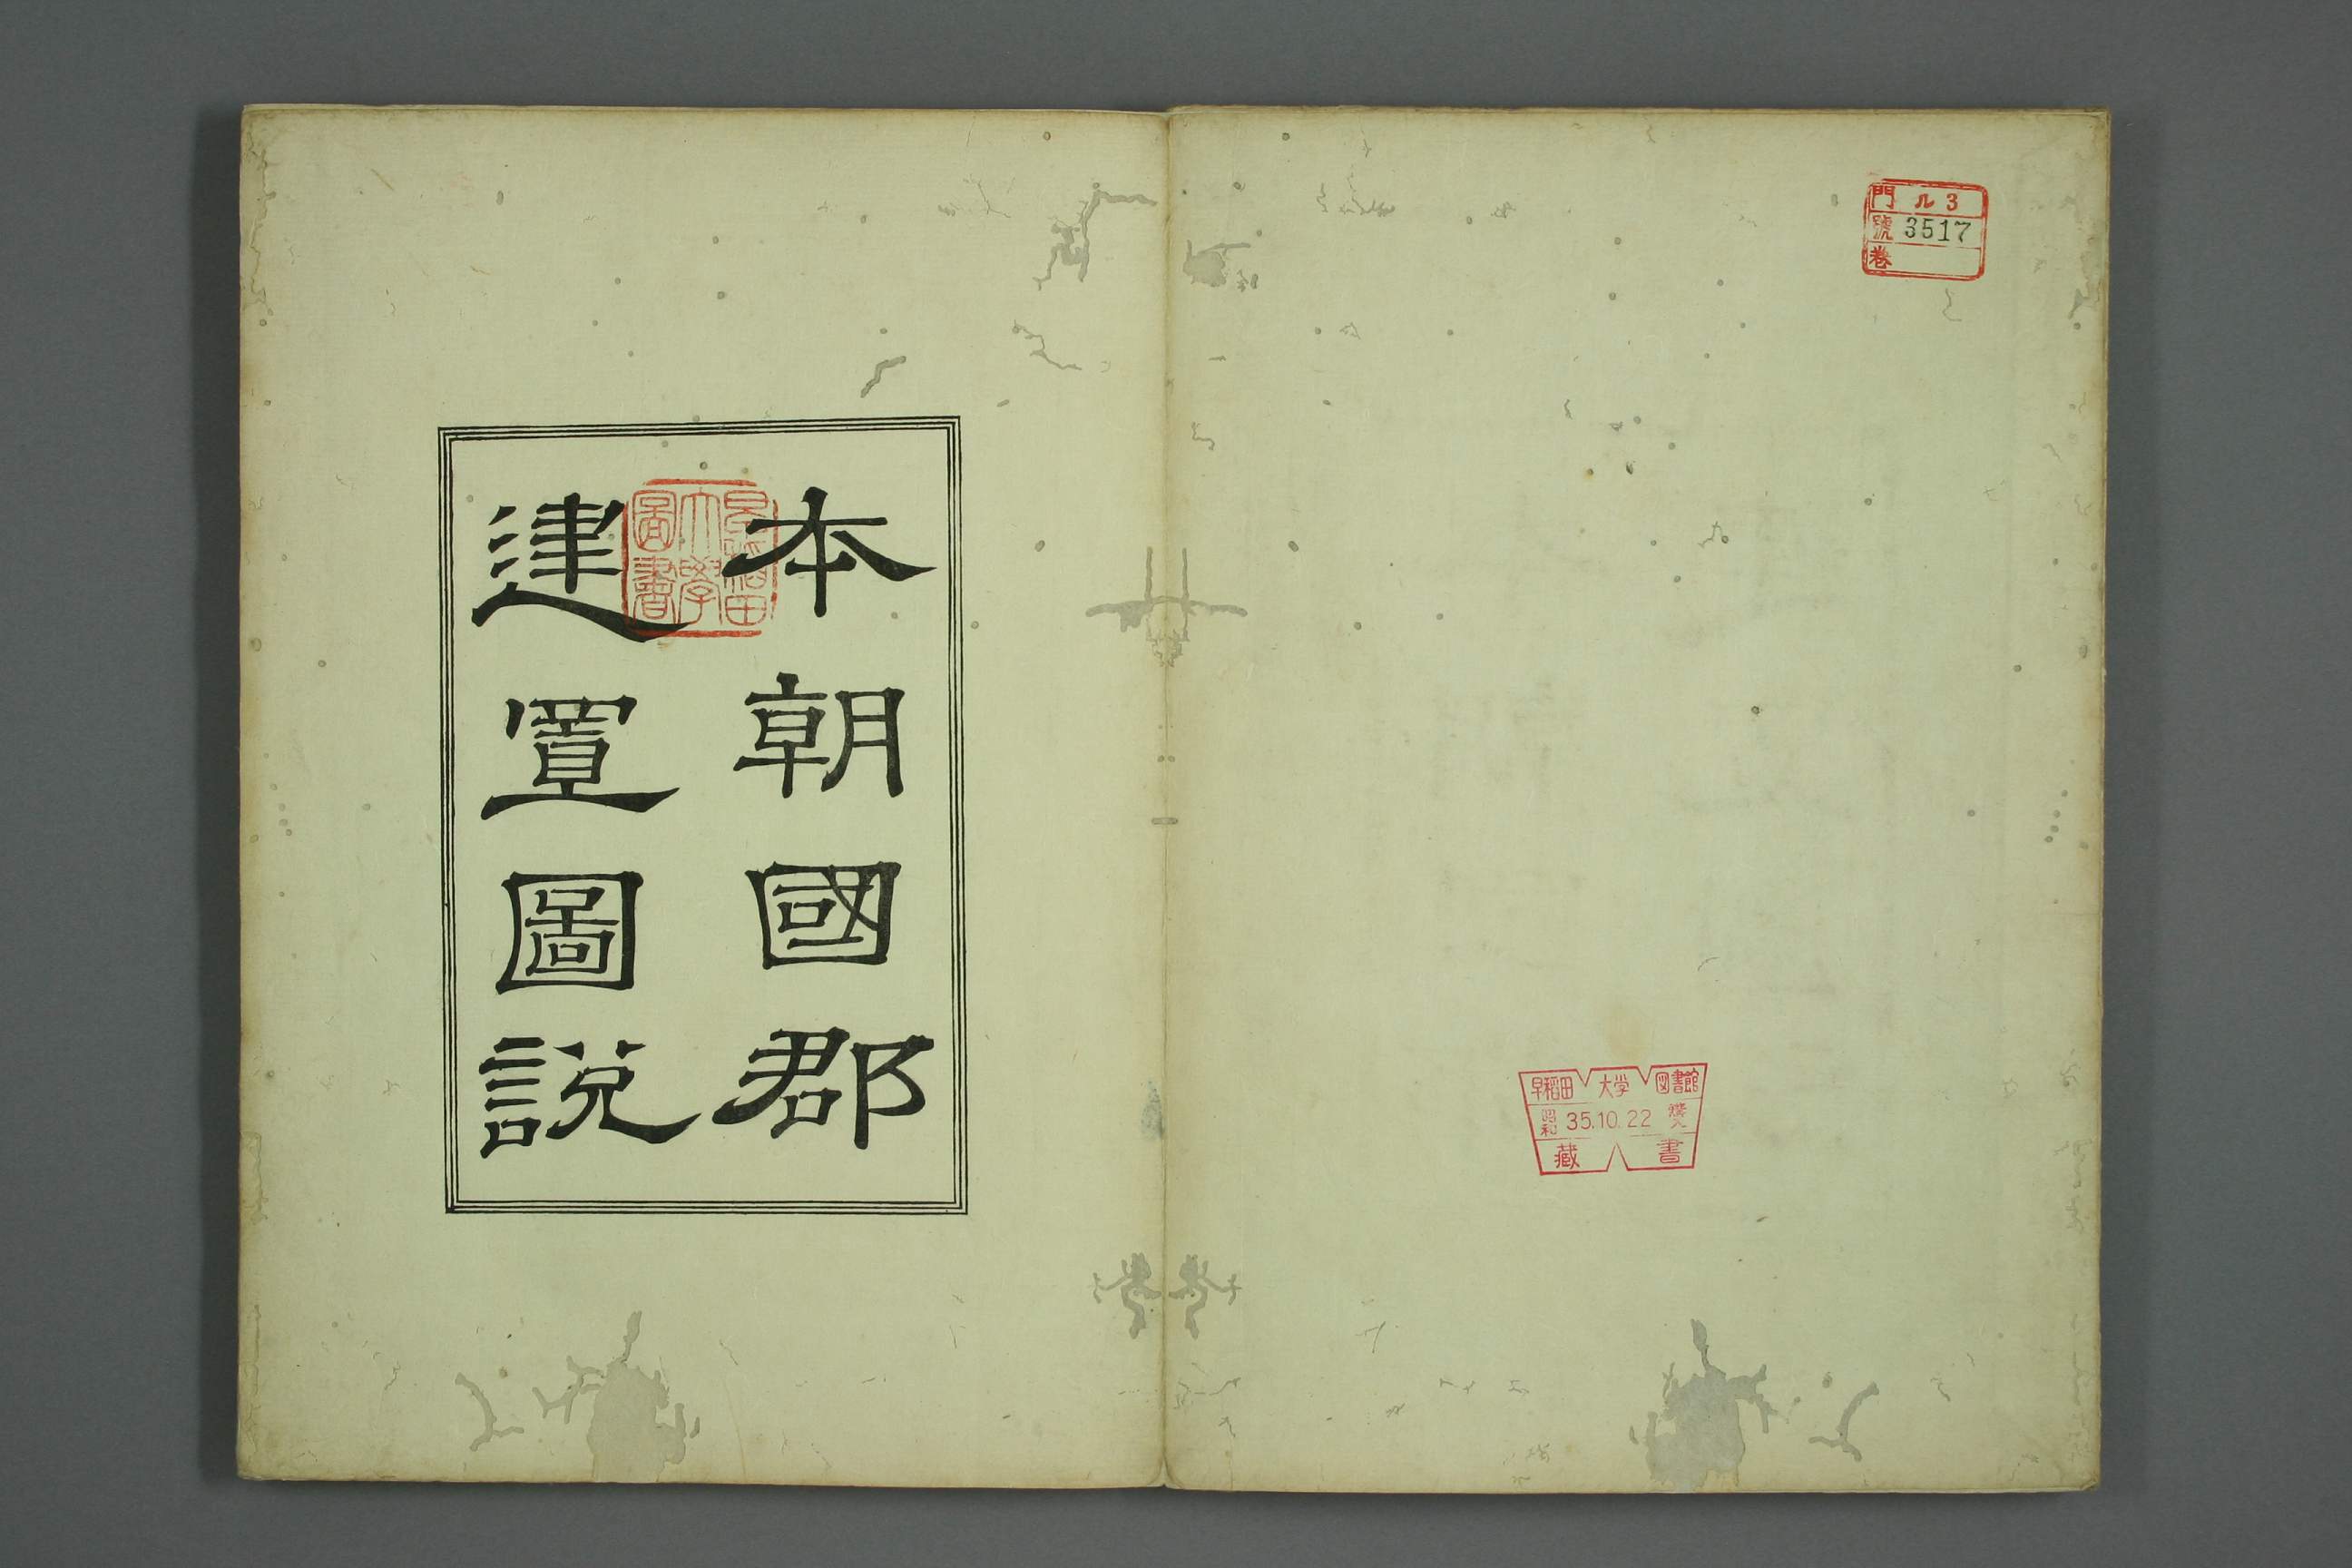 門 ル3
號 3517
卷
早稲田 大学 図書館
昭和 35.10.22
藏 書
本朝國郡
建置圖說
早稲田
大學
圖書